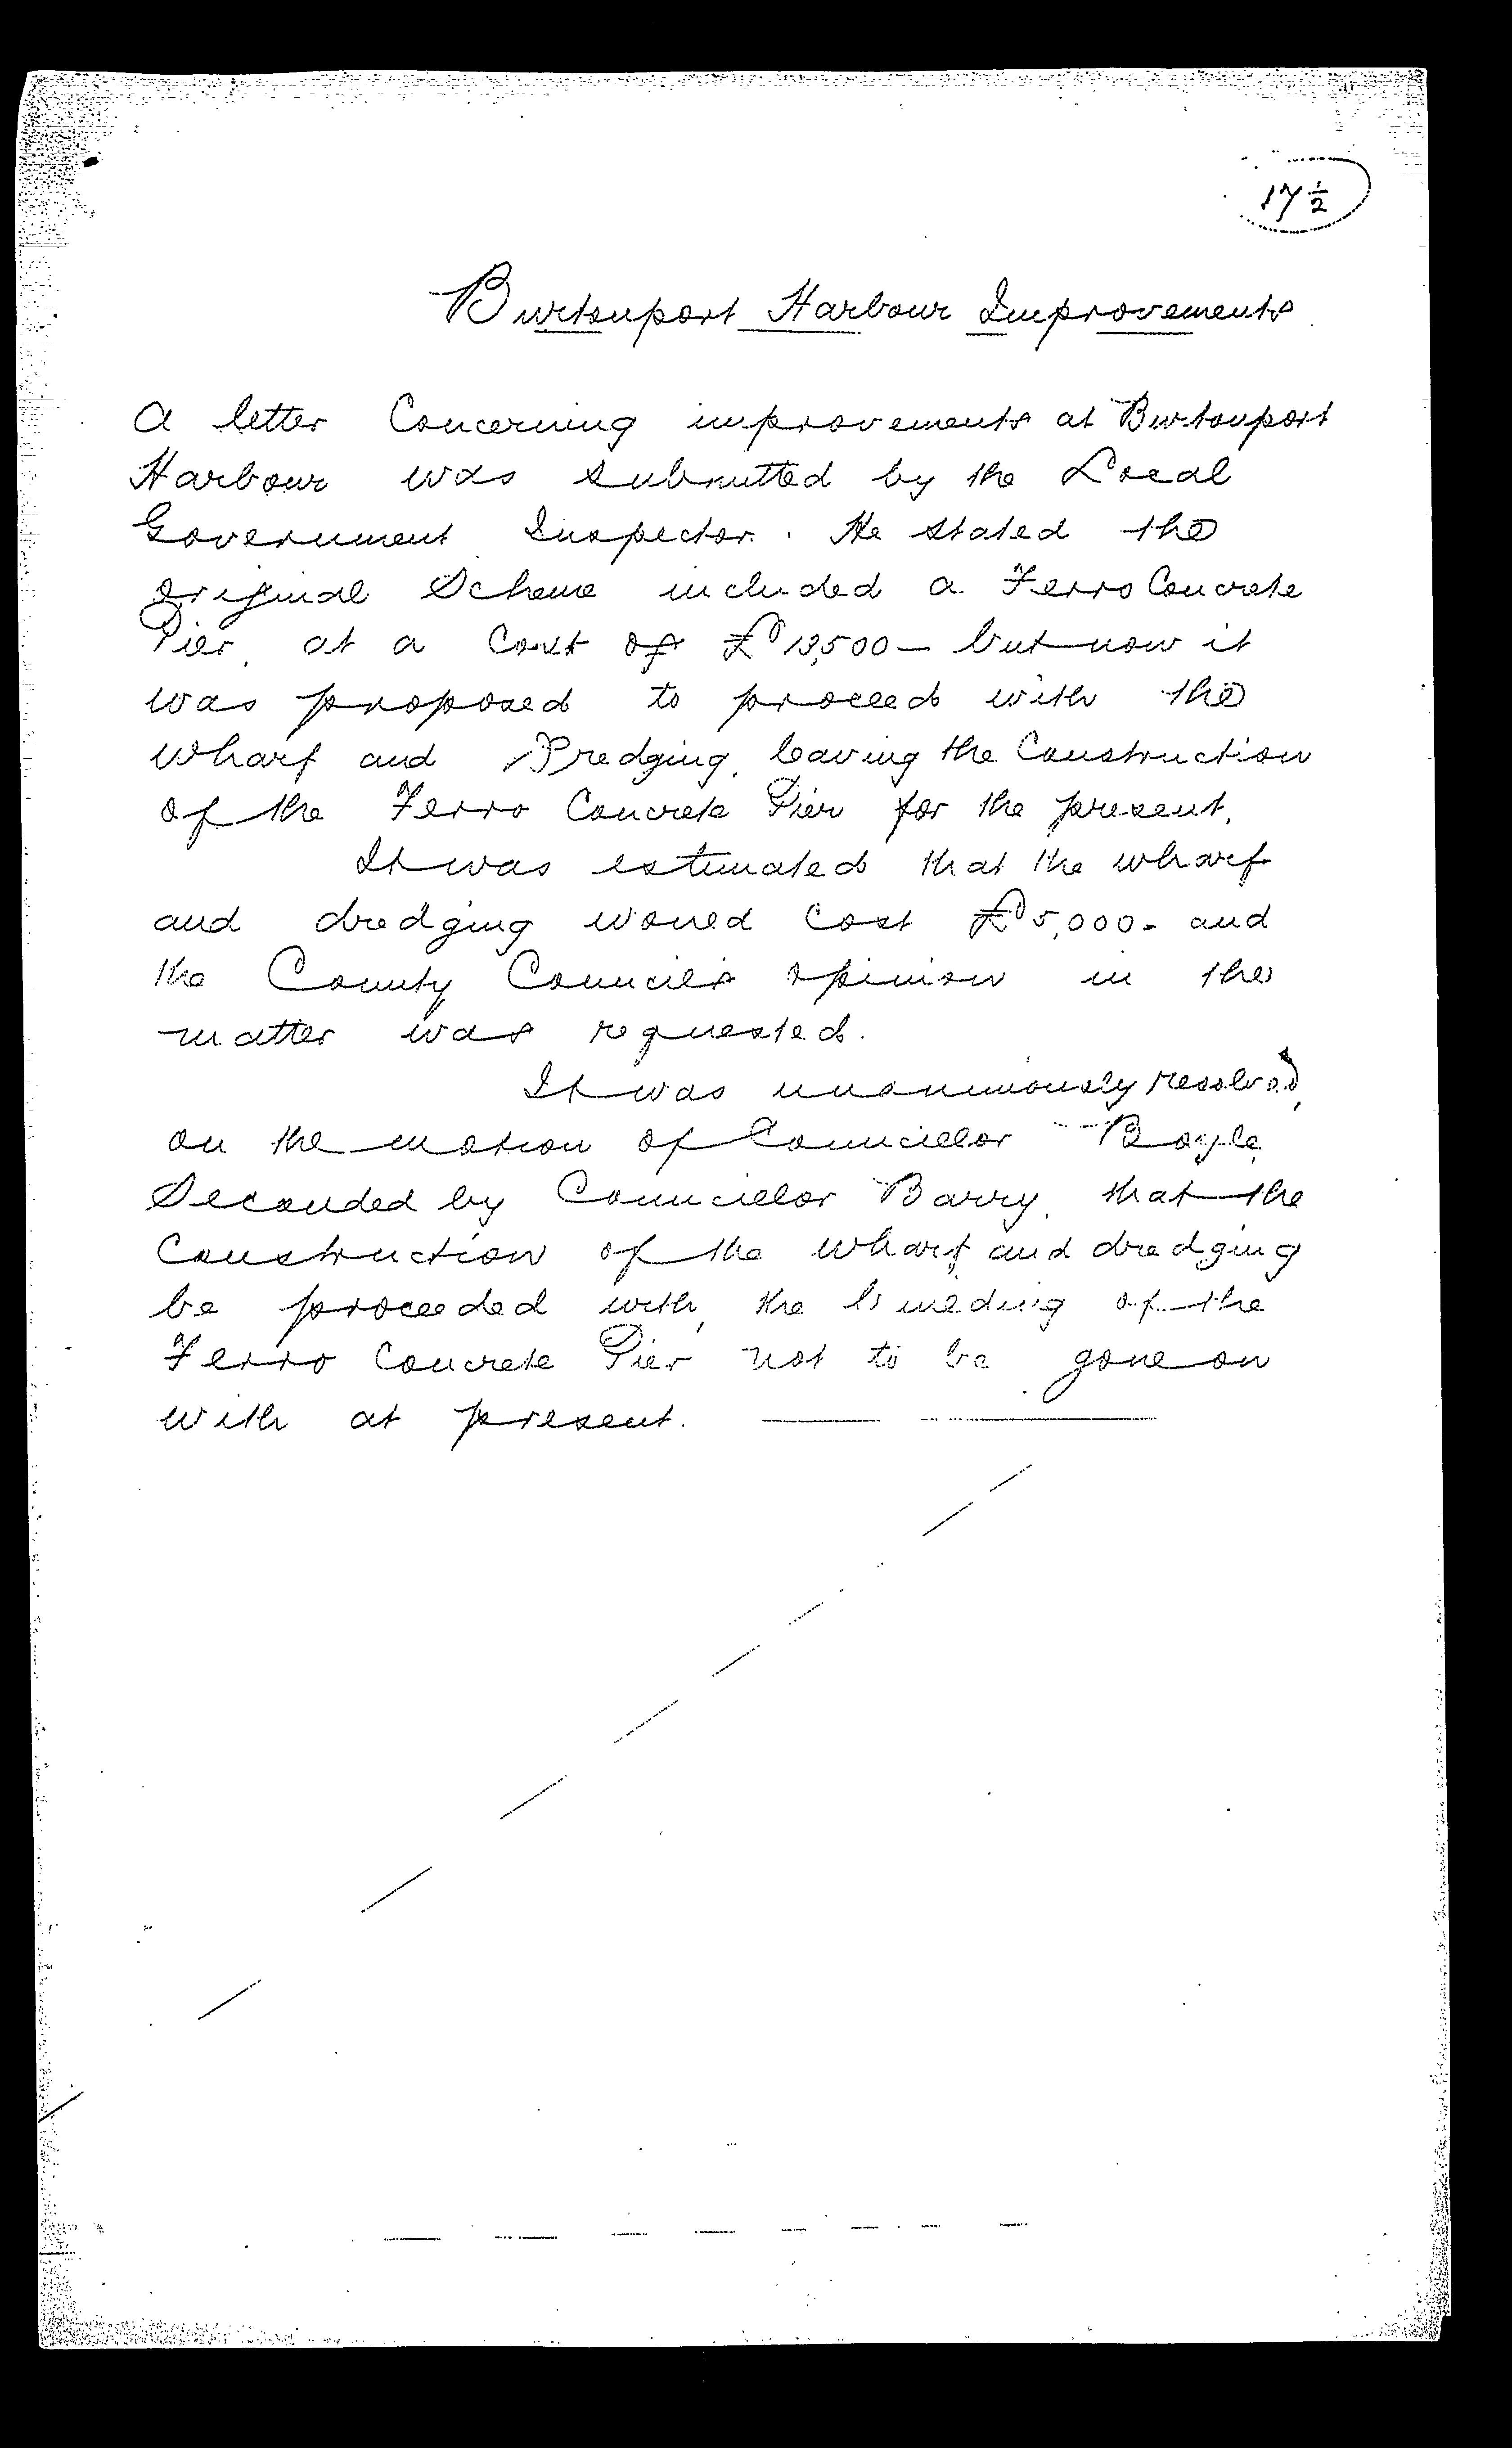 17½
Burtonport Harbour Improvements
A letter Concerning improvements at Burtonport
Harbour was submitted by the Local
Government Inspector. He stated the
original Scheme included a Ferro Concrete
Pier, at a Cost of £13,500 – but now it
was proposed to proceed with the
Wharf and Dredging, leaving the Construction
of the Ferro Concrete Pier for the present.
It was estimated that the wharf
and dredging would Cost £5,000 - and
the County Council's opinion in the
matter was requested.
It was unanimously resolved,
on the motion of Councillor Boyle
Seconded by Councillor Barry, that the
Construction of the wharf and dredging
be proceeded with, the building of the
Ferro Concrete Pier not to be gone on
with at present.